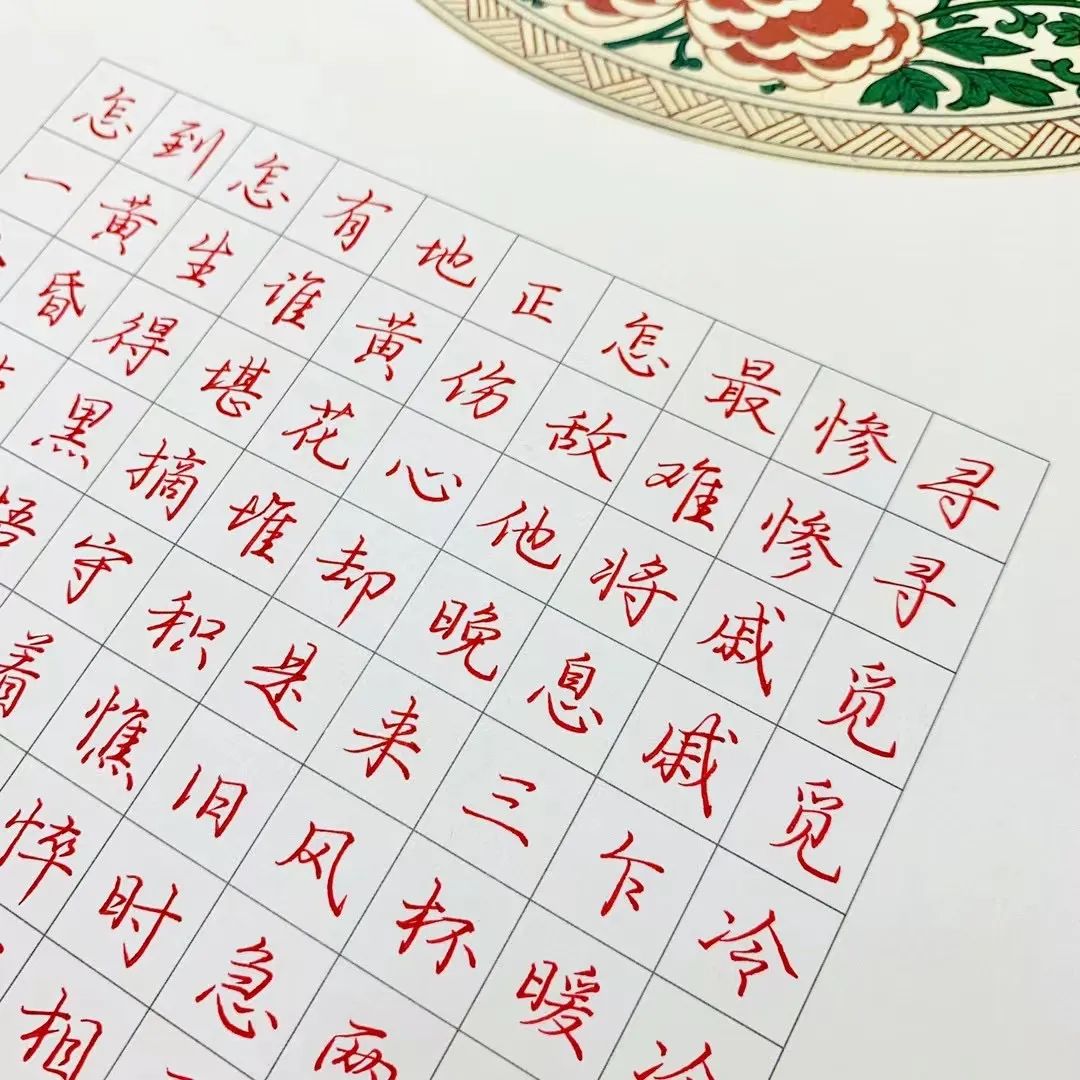 寻寻觅觅冷冷
惨惨戚戚乍暖
最难将息三杯两
怎敌他晚来风急
正伤心却是旧时相
地黄花堆积憔悴
有谁堪摘守着
怎生得黑梧
到黄昏
怎一